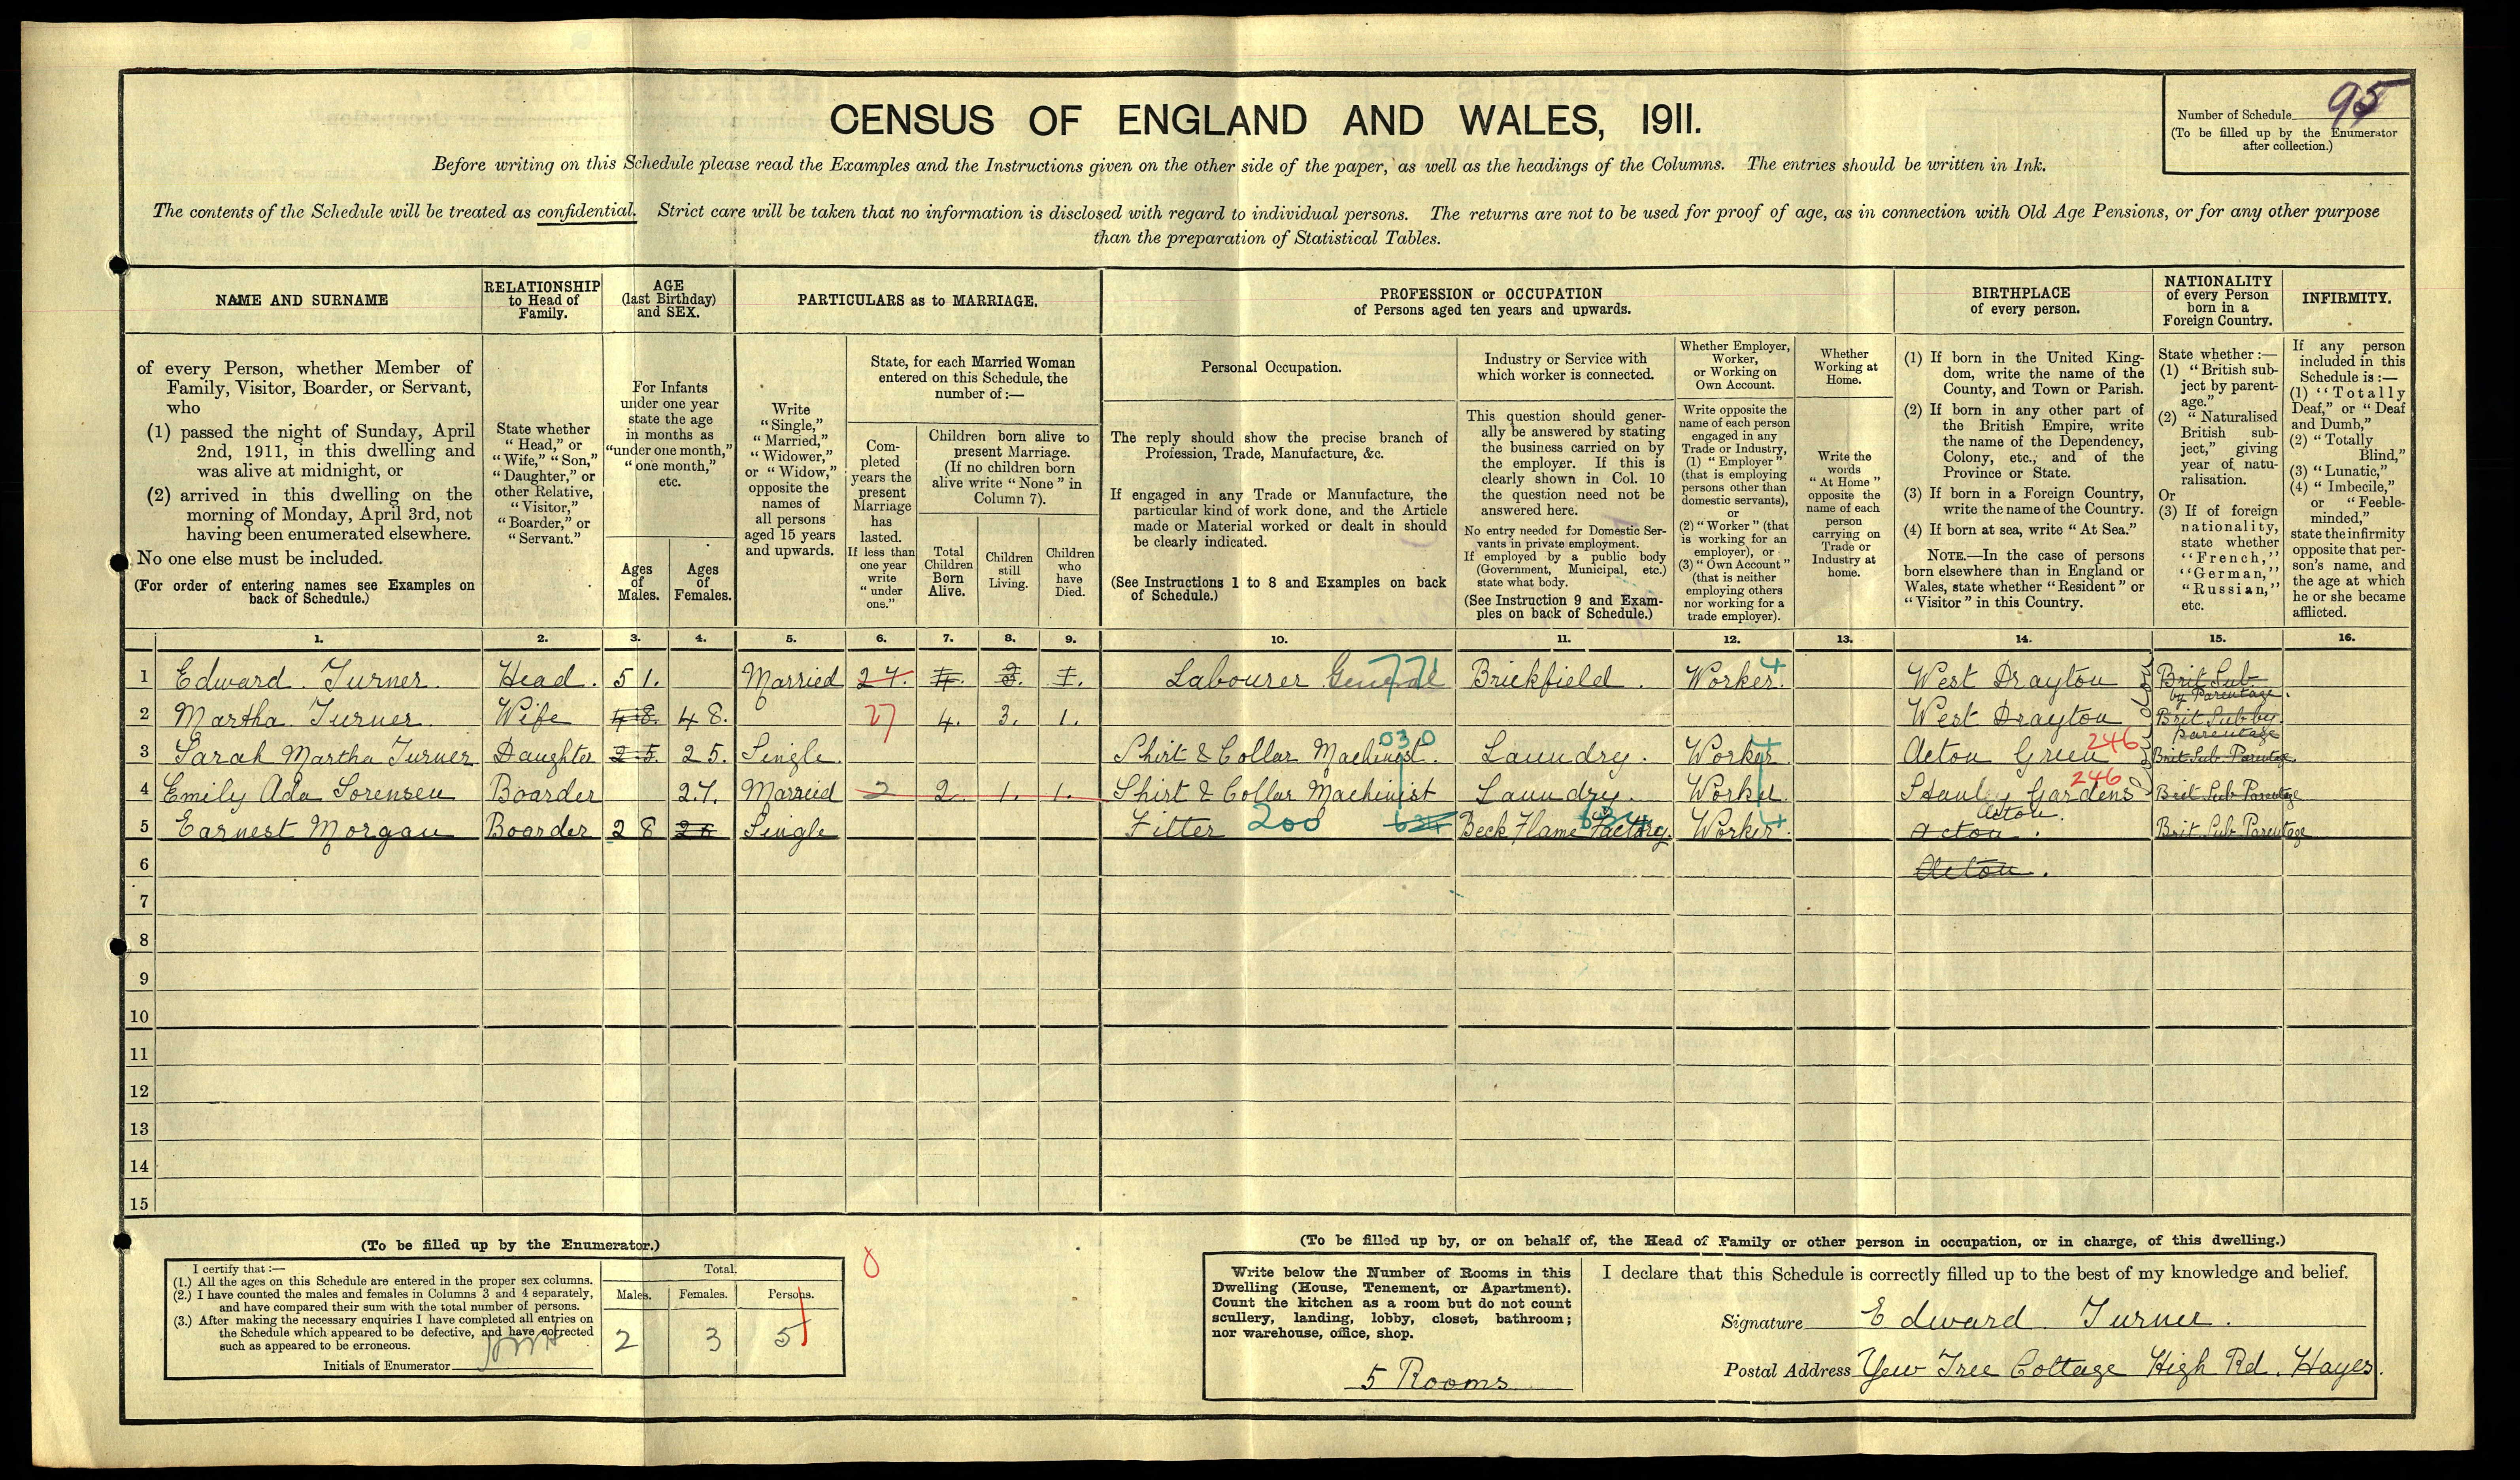 CENSUS OF ENGLAND AND WALES, 1911.
Number of Schedule 95
(To be filled up by the Enumerator
after collection.)
Before writing on this Schedule please read the Examples and the Instructions given on the other side of the paper, as well as the headings of the Columns. The entries should be written in Ink.
The contents of the Schedule will be treated as confidential. Strict care will be taken that no information is disclosed with regard to individual persons. The returns are not to be used for proof of age, as in connection with Old Age Pensions, or for any other purpose
than the preparation of Statistical Tables.
NAME AND SURNAME
of every Person, whether Member of
Family, Visitor, Boarder, or Servant,
who
(1) passed the night of Sunday, April
2nd, 1911, in this dwelling and
was alive at midnight, or
(2) arrived in this dwelling on the
morning of Monday, April 3rd, not
having been enumerated elsewhere.
No one else must be included.
(For order of entering names see Examples on
back of Schedule.)
RELATIONSHIP
to Head of
Family.
State whether
"Head," or
"Wife," "Son,"
"Daughter," or
other Relative,
"Visitor,"
"Boarder," or
"Servant."
AGE
(last Birthday)
and SEX.
For Infants
under one year
state the age
in months as
"under one month,"
"one month,"
etc.
Ages
of
Males.
Ages
of
Females.
PARTICULARS as to MARRIAGE.
Write
"Single,"
"Married,"
"Widower,"
or "Widow,"
opposite the
names of
all persons
aged 15 years
and upwards.
State, for each Married Woman
entered on this Schedule, the
number of:—
Com-
pleted
years the
present
Marriage
has
lasted.
If less than
one year
write
"under
one."
Children born alive to
present Marriage.
(If no children born
alive write "None" in
Column 7).
Total
Children
Born
Alive.
Children
still
Living.
Children
who
have
Died.
PROFESSION or OCCUPATION
of Persons aged ten years and upwards.
Personal Occupation.
The reply should show the precise branch of
Profession, Trade, Manufacture, &c.
If engaged in any Trade or Manufacture, the
particular kind of work done, and the Article
made or Material worked or dealt in should
be clearly indicated.
(See Instructions 1 to 8 and Examples on back
of Schedule.)
Industry or Service with
which worker is connected.
This question should gener-
ally be answered by stating
the business carried on by
the employer. If this is
clearly shown in Col. 10
the question need not be
answered here.
No entry needed for Domestic Ser-
vants in private employment.
If employed by a public body
(Government, Municipal, etc.)
state what body.
(See Instruction 9 and Exam-
ples on back of Schedule.)
Whether Employer,
Worker,
or Working on
Own Account.
Write opposite the
name of each person
engaged in any
Trade or Industry,
(1) "Employer"
(that is employing
persons other than
domestic servants),
or
(2) "Worker" (that
is working for an
employer), or
(3) "Own Account"
(that is neither
employing others
nor working for a
trade employer).
Whether
Working at
Home.
Write the
words
"At Home"
opposite the
name of each
person
carrying on
Trade or
Industry at
home.
BIRTHPLACE
of every person.
(1) If born in the United King-
dom, write the name of the
County, and Town or Parish.
(2) If born in any other part of
the British Empire, write
the name of the Dependency,
Colony, etc., and of the
Province or State.
(3) If born in a Foreign Country,
write the name of the Country.
(4) If born at sea, write "At Sea."
NOTE.—In the case of persons
born elsewhere than in England or
Wales, state whether "Resident" or
"Visitor" in this Country.
NATIONALITY
of every Person
born in a
Foreign Country.
State whether:—
(1) "British sub-
ject by parent-
age."
(2) "Naturalised
British sub-
ject," giving
year of natu-
ralisation.
Or
(3) If of foreign
nationality,
state whether
"French,"
"German,"
"Russian,"
etc.
INFIRMITY.
If any person
included in this
Schedule is:—
(1) "Totally
Deaf," or "Deaf
and Dumb,"
(2) "Totally
Blind,"
(3) "Lunatic,"
(4) "Imbecile,"
or "Feeble-
minded,"
state the infirmity
opposite that per-
son's name, and
the age at which
he or she became
afflicted.
1. 2. 3. 4. 5. 6. 7. 8. 9. 10. 11. 12. 13. 14. 15. 16.
1 Edward Turner. Head. 51. Married 27. 4. 3. 1. Labourer General 771 Brickfield. Worker. 4 West Drayton Brit Sub by Parentage.
2 Martha Turner. Wife 48. 48. 27 4. 3. 1. West Drayton Brit Sub by Parentage
3 Sarah Martha Turner Daughter 25. 25. Single Shirt & Collar Machinest. 030 Laundry. Worker 4 Acton Green 246 Brit Sub Parentage.
4 Emily Ada Sorensen Boarder 27. Married 2 2. 1. 1. Shirt & Collar Machinist Laundry. Worker. Stanley Gardens 246 Acton. Brit Sub Parentage
5 Earnest Morgan Boarder 28 Single Fitter 200 Beck Flame Factory. Worker. 4 Acton. Brit Sub Parentage
6 Acton.
7
8
9
10
11
12
13
14
15
(To be filled up by the Enumerator.)
I certify that:—
(1.) All the ages on this Schedule are entered in the proper sex columns.
(2.) I have counted the males and females in Columns 3 and 4 separately,
and have compared their sum with the total number of persons.
(3.) After making the necessary enquiries I have completed all entries on
the Schedule which appeared to be defective, and have corrected
such as appeared to be erroneous.
Initials of Enumerator
Total.
Males. Females. Persons.
2 3 5
(To be filled up by, or on behalf of, the Head of Family or other person in occupation, or in charge, of this dwelling.)
Write below the Number of Rooms in this
Dwelling (House, Tenement, or Apartment).
Count the kitchen as a room but do not count
scullery, landing, lobby, closet, bathroom;
nor warehouse, office, shop.
5 Rooms
I declare that this Schedule is correctly filled up to the best of my knowledge and belief.
Signature Edward Turner.
Postal Address Yew Tree Cottage High Rd. Hayes.